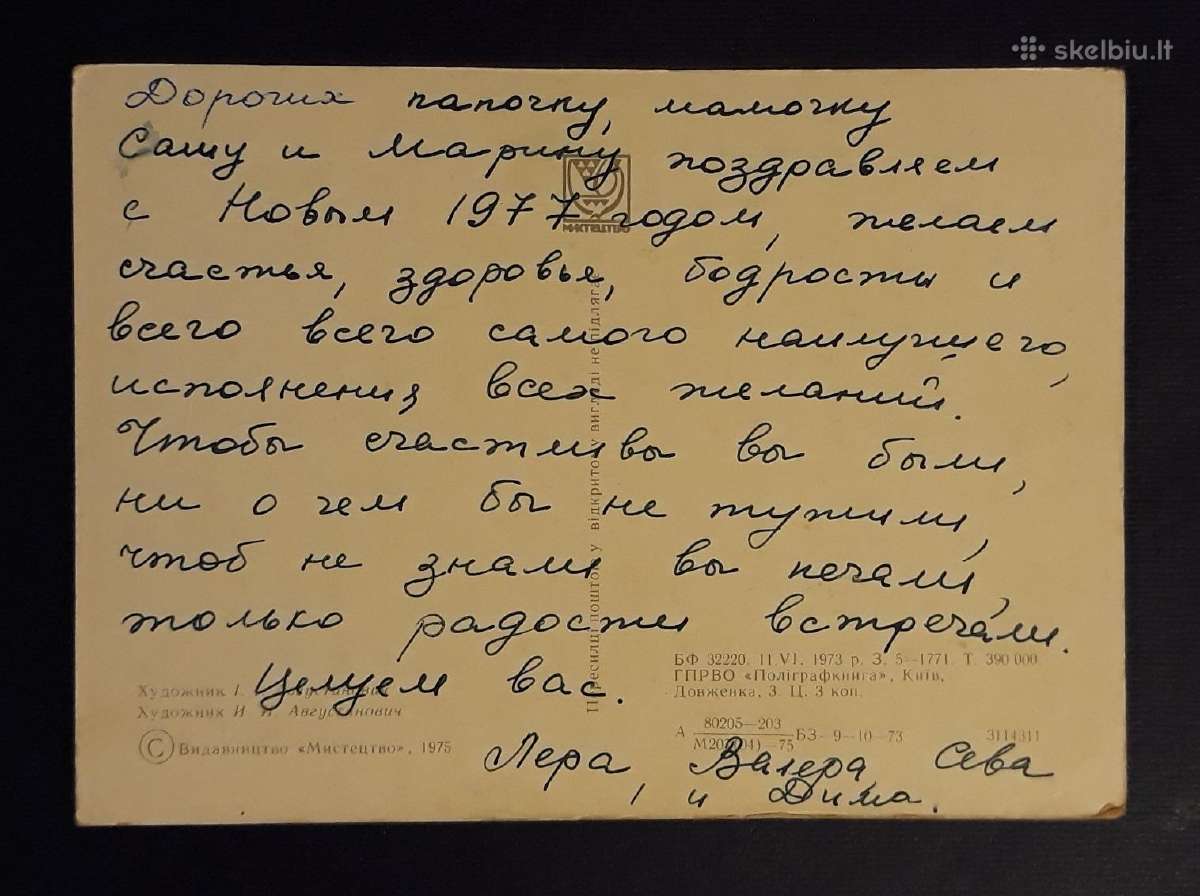 skelbiu.lt
Дорогих папочку, мамочку
Сашу и Марину поздравляем
с Новым 1977 годом, желаем
счастья, здоровья, бодрости и
всего всего самого наилучшего,
исполнения всех желаний.
Чтобы счастливы вы были,
ни о чем бы не тужили,
чтоб не знали вы печали,
только радости встречали.
Целуем вас.
Лера, Валера, Сева
и Дима.
МИСТЕЦТВО
Пересилці поштою у відкритому вигляді не підлягає
Художник І.
Художник И. И. Августинович
© Видавництво «Мистецтво», 1975
БФ 32220. 11.VI. 1973 р. З. 5—1771. Т. 390 000
ГПРВО «Поліграфкнига», Київ,
Довженка, 3. Ц. 3 коп.
А 80205—203
БЗ—9—10—73 3114311